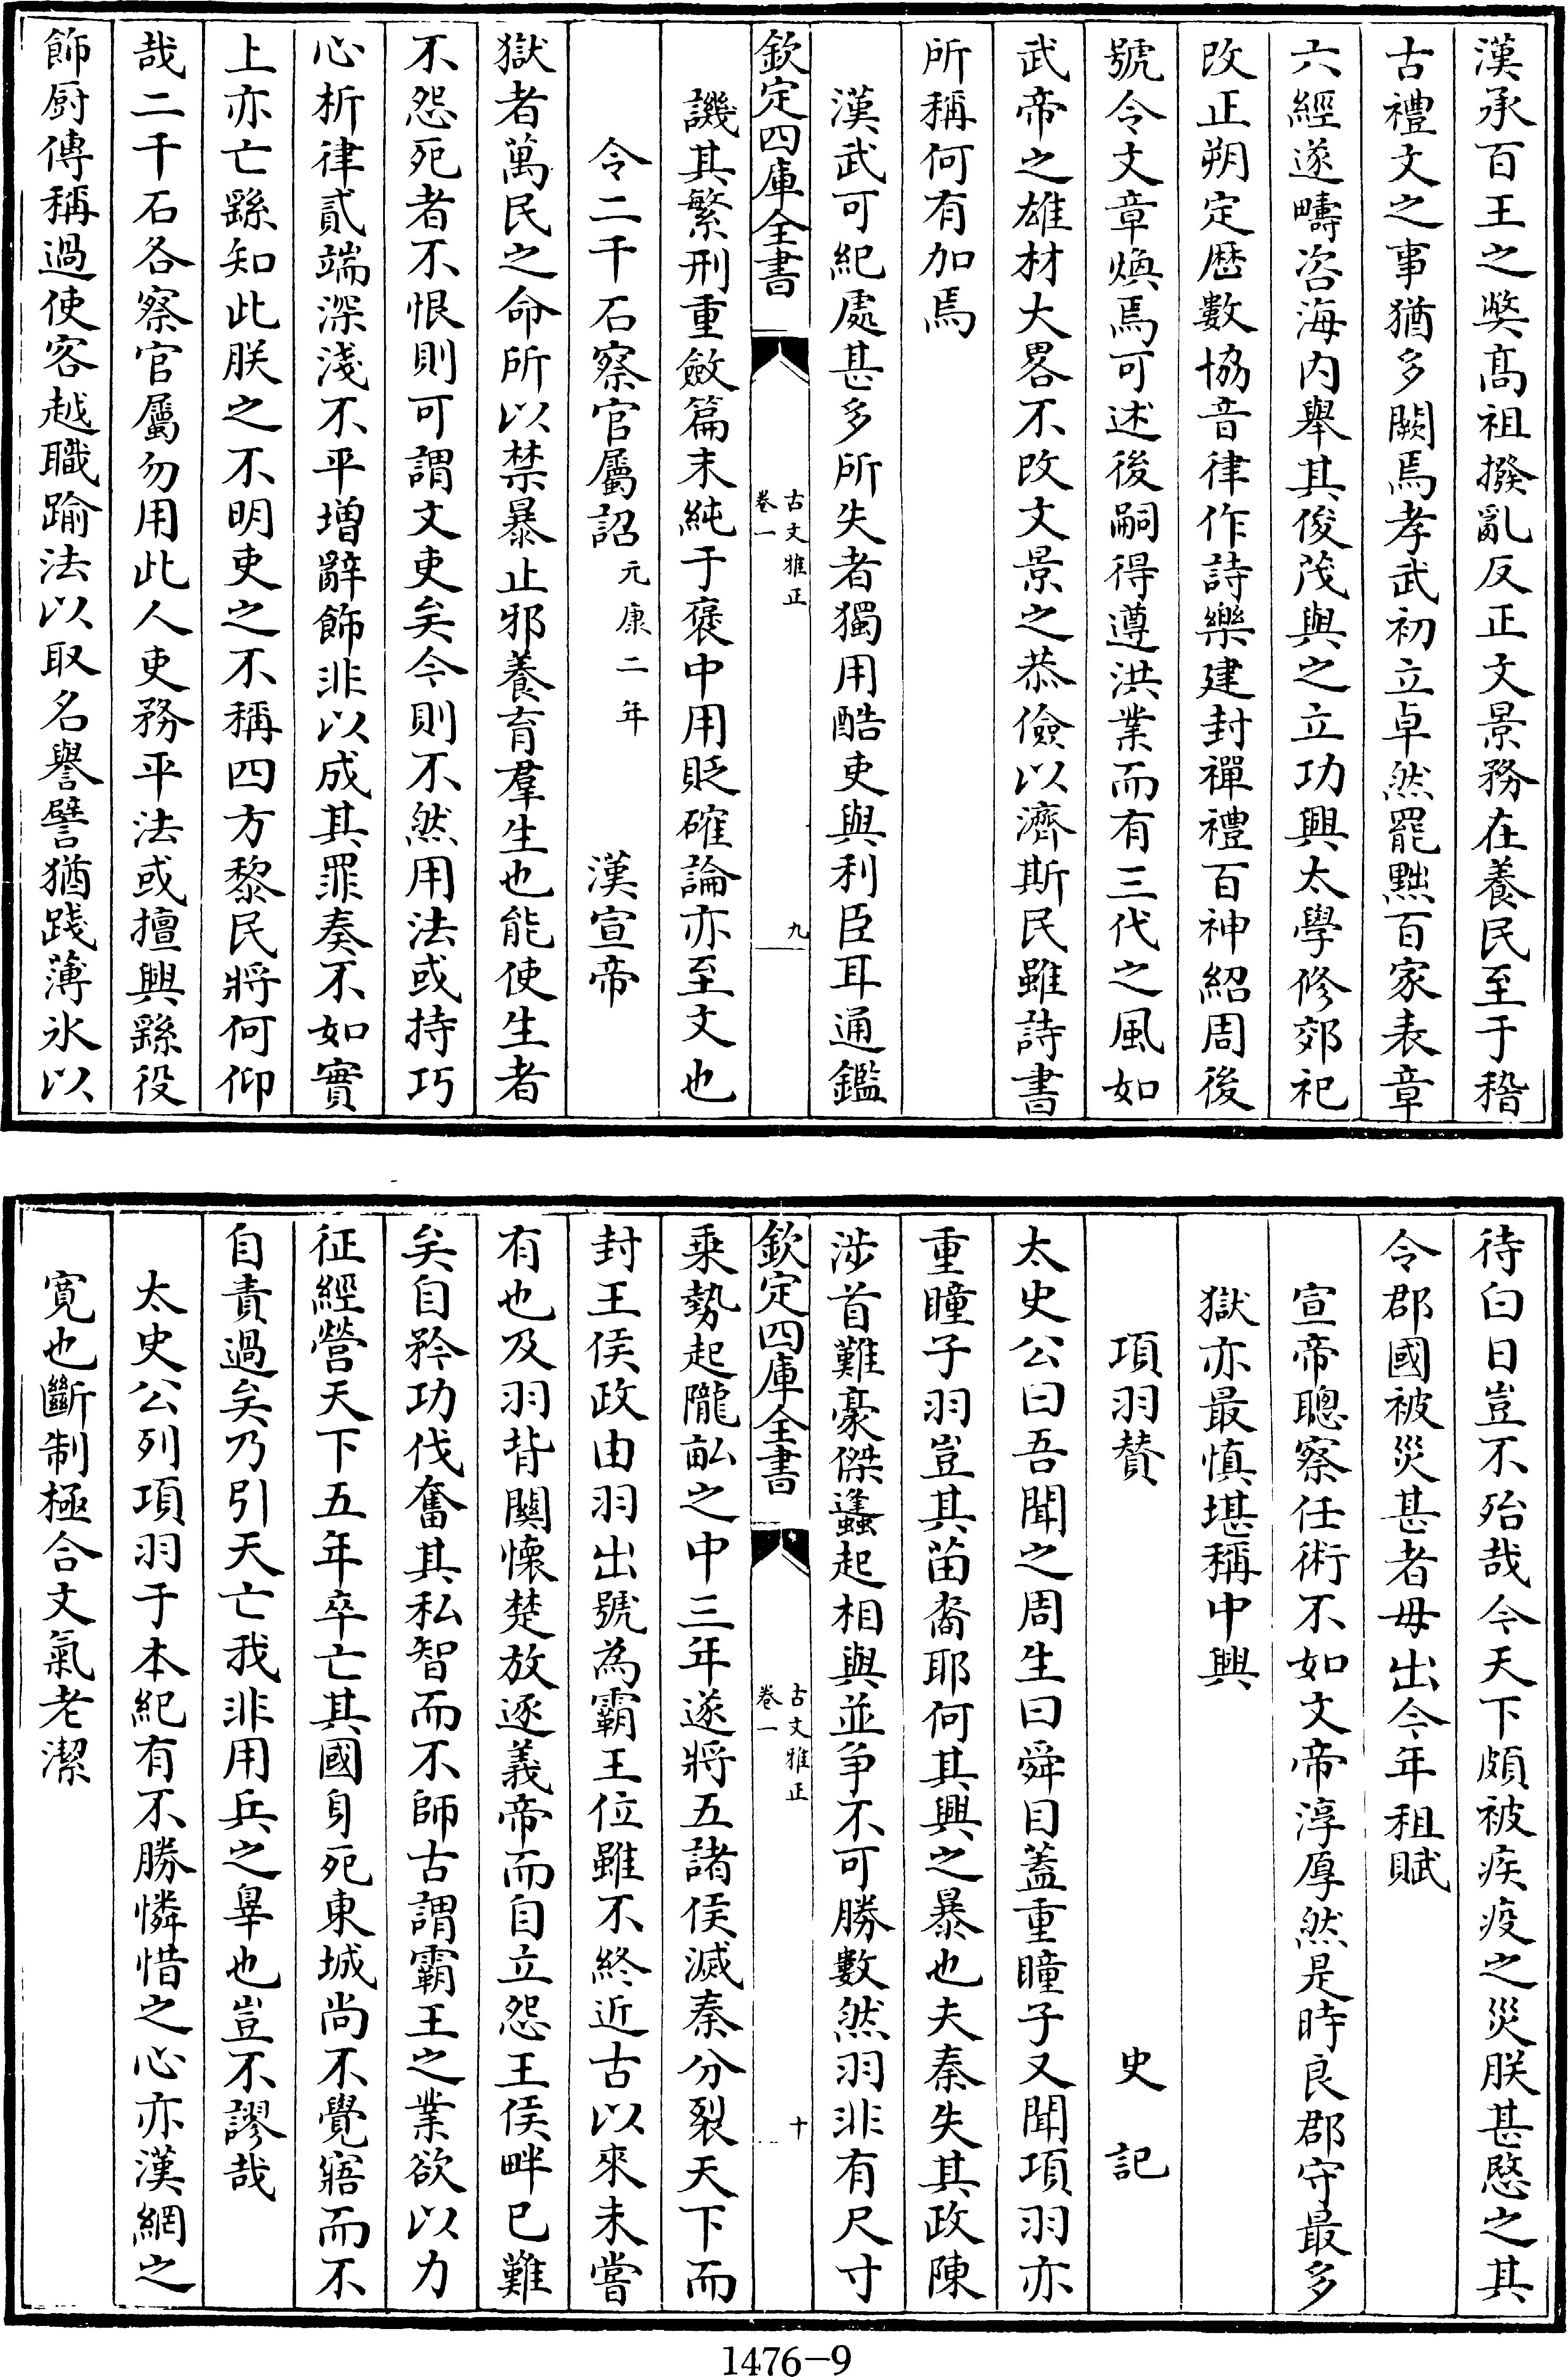 漢承百王之弊髙祖撥亂反正文景務在養民至于稽
古禮文之事猶多闕焉孝武初立卓然罷黜百家表章
六經遂疇咨海内舉其俊茂與之立功興太學修郊祀
改正朔定厯數協音律作詩樂建封禪禮百神紹周後
號令文章煥焉可述後嗣得遵洪業而有三代之風如
武帝之雄材大畧不改文景之恭儉以濟斯民雖詩書
所稱何有加焉
漢武可紀處甚多所失者獨用酷吏與利臣耳通鑑
欽定四庫全書
古文雅正
卷一
九
譏其繁刑重斂篇末純于褒中用貶確論亦至文也
令二千石察官屬詔元康二年 漢宣帝
獄者萬民之命所以禁暴止邪養育羣生也能使生者
不怨死者不恨則可謂文吏矣今則不然用法或持巧
心析律貳端深淺不平增辭飾非以成其罪奏不如實
上亦亡繇知此朕之不明吏之不稱四方黎民將何仰
哉二千石各察官屬勿用此人吏務平法或擅興繇役
飾厨傳稱過使客越職踰法以取名譽譬猶踐薄氷以
待白日豈不殆哉今天下頗被疾疫之災朕甚愍之其
令郡國被災甚者毋出今年租賦
宣帝聰察任術不如文帝淳厚然是時良郡守最多
獄亦最慎堪稱中興
項羽賛 史記
太史公曰吾聞之周生曰舜目蓋重瞳子又聞項羽亦
重瞳子羽豈其苗裔耶何其興之暴也夫秦失其政陳
涉首難豪傑蠭起相與並争不可勝數然羽非有尺寸
欽定四庫全書
古文雅正
卷一
十
乗勢起隴畝之中三年遂將五諸侯滅秦分裂天下而
封王侯政由羽出號為霸王位雖不終近古以來未嘗
有也及羽背闗懷楚放逐義帝而自立怨王侯畔已難
矣自矜功伐奮其私智而不師古謂霸王之業欲以力
征經營天下五年卒亡其國身死東城尚不覺寤而不
自責過矣乃引天亡我非用兵之辠也豈不謬哉
太史公列項羽于本紀有不勝憐惜之心亦漢網之
寛也斷制極合文氣老潔
1476-9